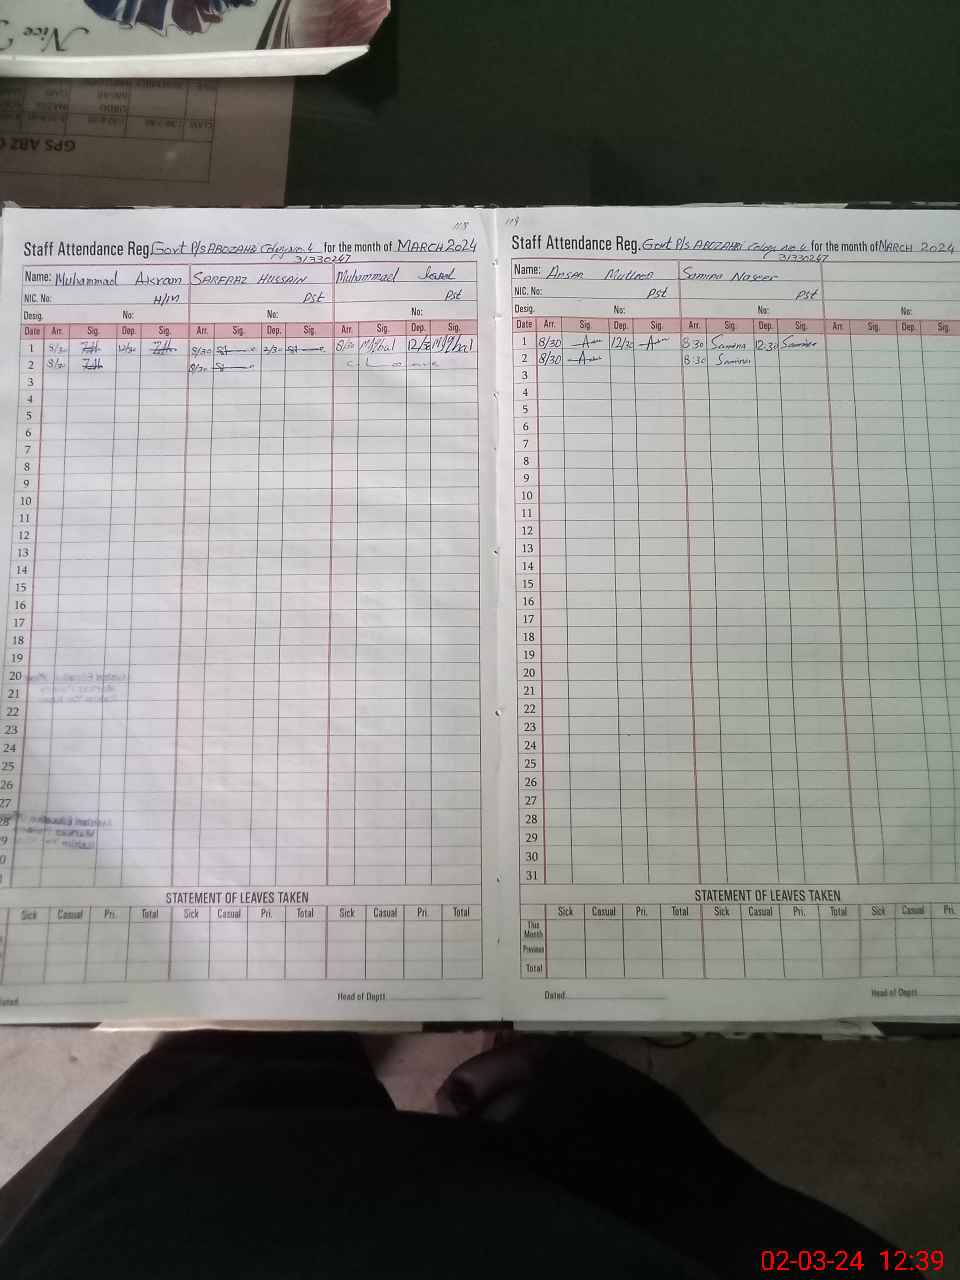 Nice
GPS ABZ
118
Staff Attendance Reg. Govt P/S ABOZAHR Colony No. 4 for the month of MARCH 2024
31330247
Name: Muhammad Akram SARFRAZ HUSSAIN Muhammad
NIC. No: H/M Pst Pst
Desig. No: No: No:
Date Arr. Sig. Dep. Sig. Arr. Sig. Dep. Sig. Arr. Sig. Dep. Sig.
1 8/30 12/30 8/30 2/30 8/30 M/Iqbal 12/30 M/Iqbal
2 8/30 8/30 C L
3
4
5
6
7
8
9
10
11
12
13
14
15
16
17
18
19
20
21
22
23
24
25
26
27
28
9
0
STATEMENT OF LEAVES TAKEN
Sick Casual Pri. Total Sick Casual Pri. Total Sick Casual Pri. Total
Dated Head of Deptt.
119
Staff Attendance Reg. Govt P/S ABOZAHR Colony No. 4 for the month of MARCH 2024
31330247
Name: Ansar Samina Naseer
NIC. No: Pst Pst
Desig. No: No: No:
Date Arr. Sig. Dep. Sig. Arr. Sig. Dep. Sig. Arr. Sig. Dep. Sig.
1 8/30 12/30 8:30 Samina 12:30 Samina
2 8/30 8:30 Samina
3
4
5
6
7
8
9
10
11
12
13
14
15
16
17
18
19
20
21
22
23
24
25
26
27
28
29
30
31
STATEMENT OF LEAVES TAKEN
Sick Casual Pri. Total Sick Casual Pri. Total Sick Casual Pri.
This Month
Previous
Total
Dated Head of Deptt.
02-03-24 12:39